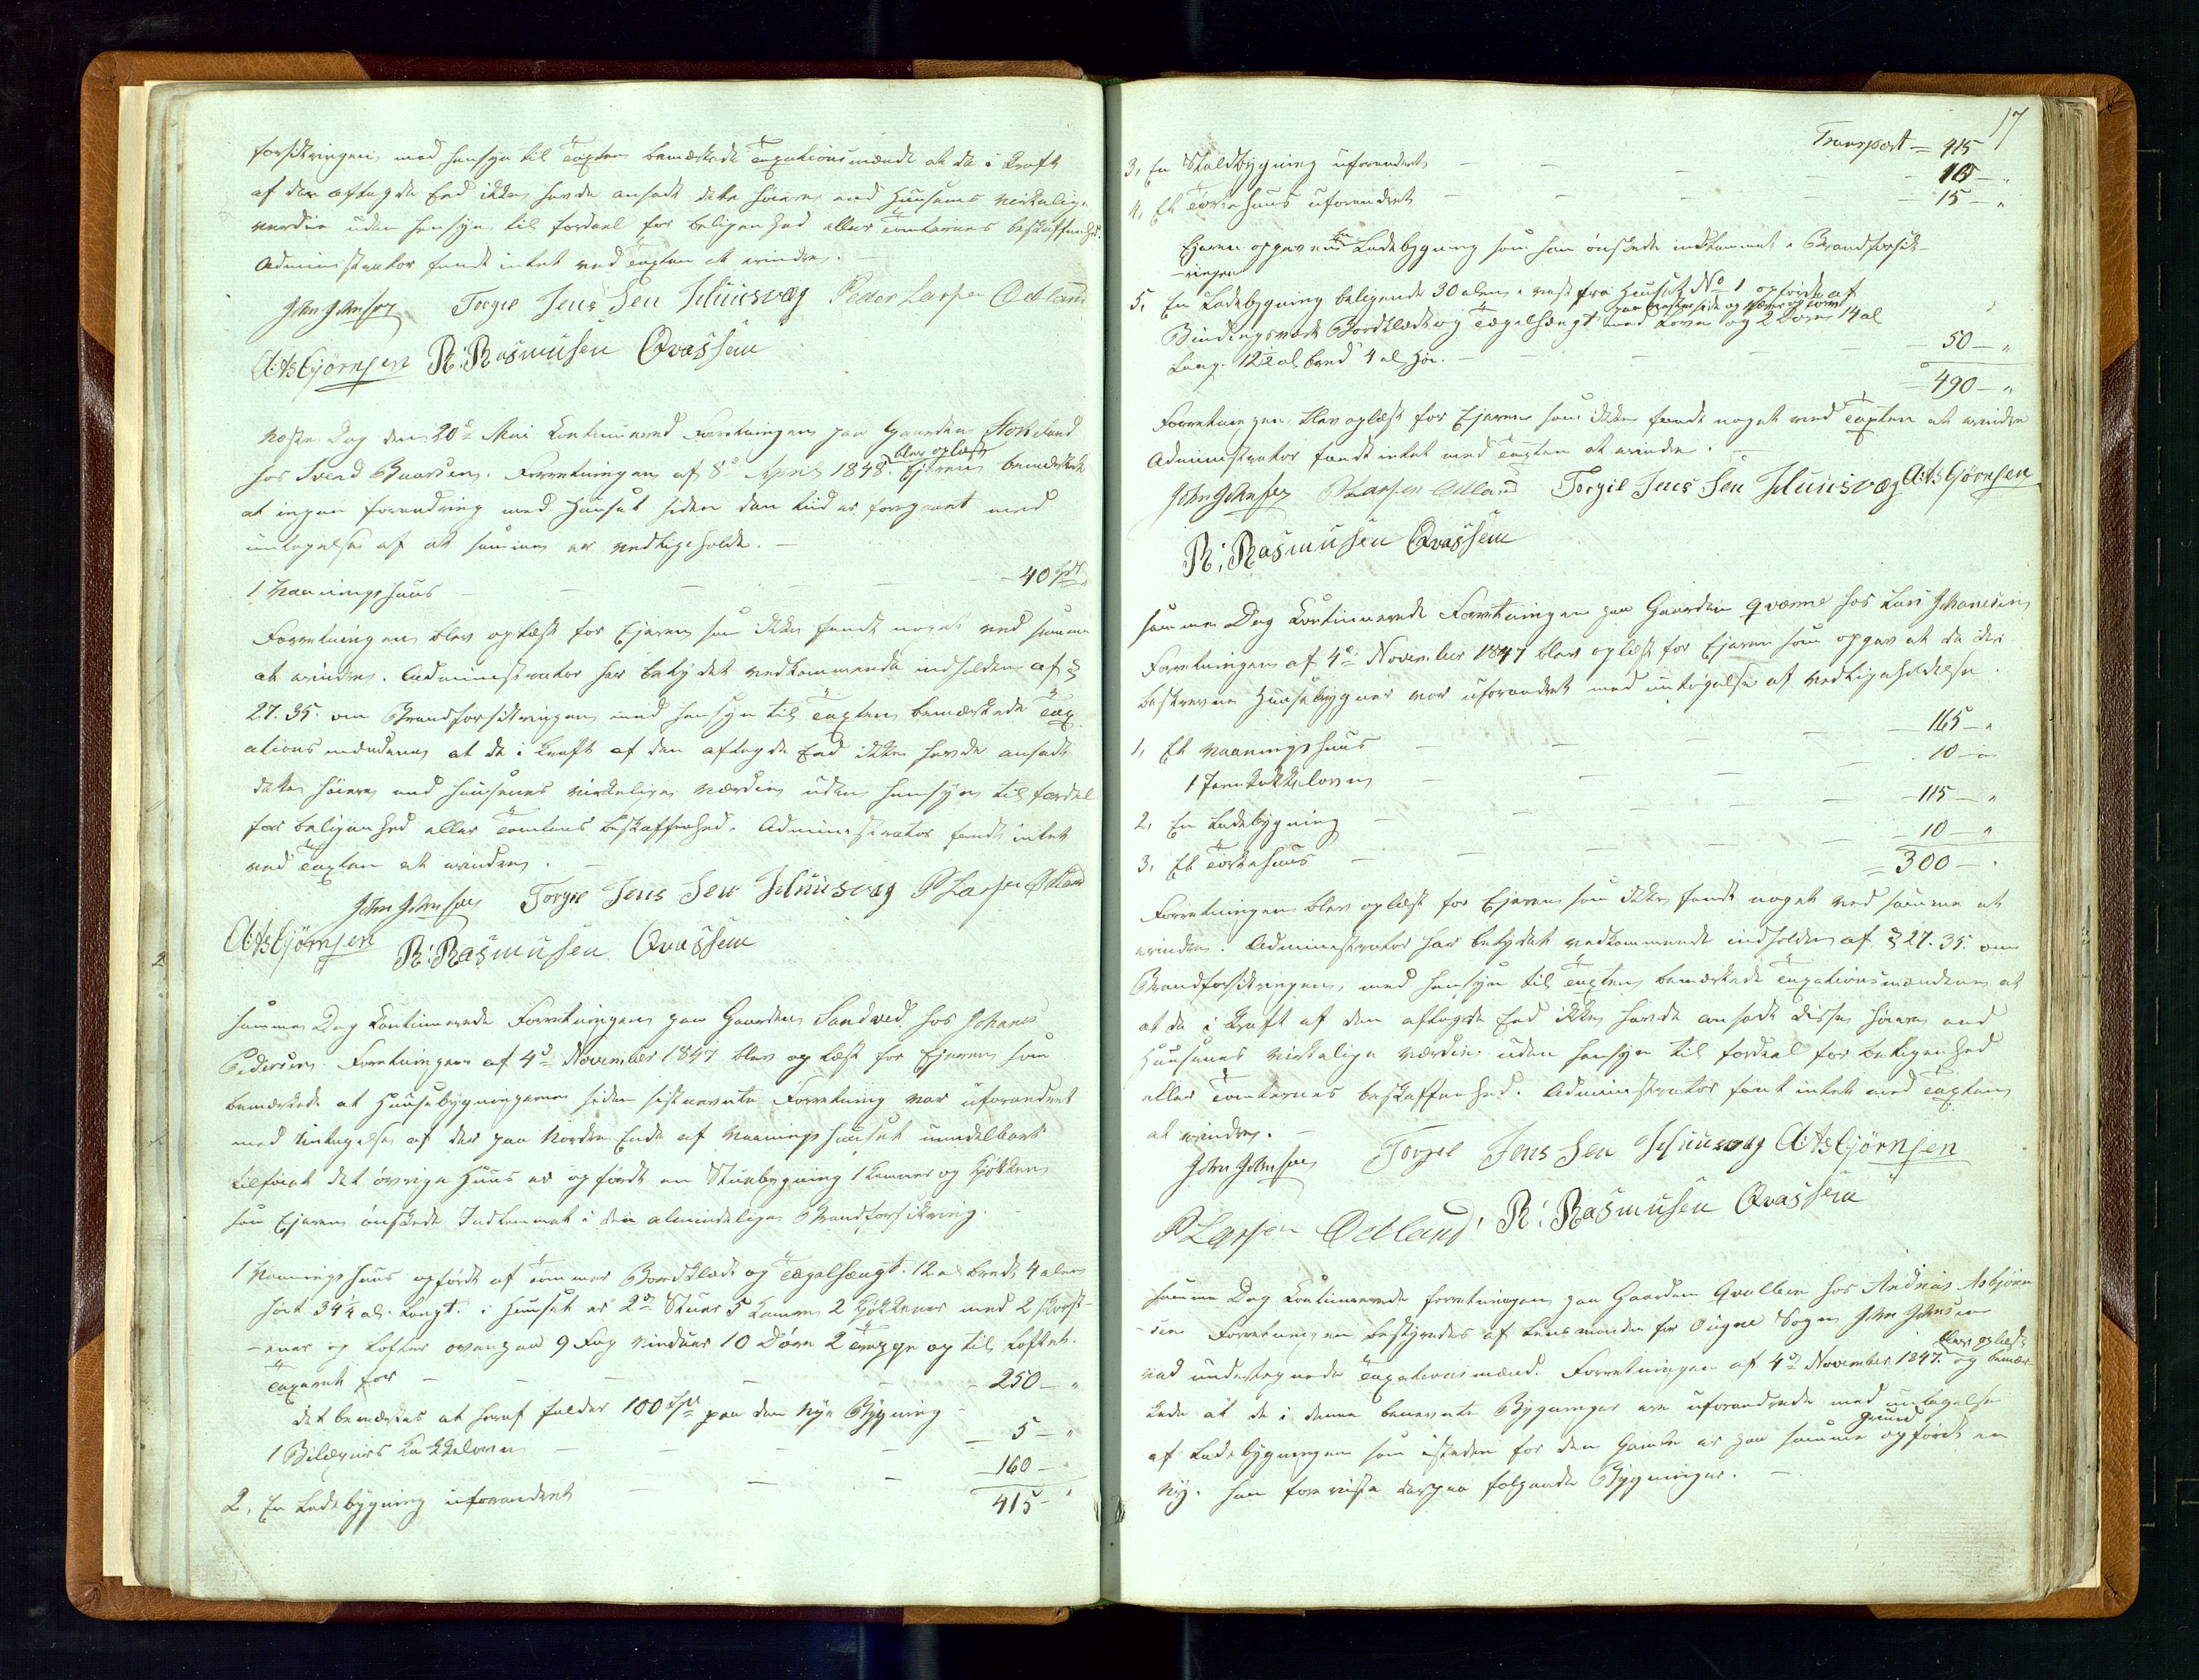 forsikringen, med hensyn til Taxten bemærkede Taxationsmænde at de i kraft
af den aflagde Eed ikke havde ansadt dette høiere end Huusenes virkelige
værdie uden hensyn til fordeel for beligenhed eller Tomternes beskaffenhed.
Administrator fandt intet ved Taxten at erindre.
John Johnsen Torgie Jens Sen Schuisvæg Peder Larsen Ødland
A: Asbjørnsen R: Rasmusen Qvassem
Næste Dag den 20de Mai Kontinuered Forretningen paa Gaarden Stokeland
hos Svend Baardsen. Forretningen af 8de April 1848 blev oplæst Ejeren bemærkede
at ingen forandring med Huuset siden den tiid er foregaaet med
undtagelse af at samme er vedligeholdt.
1 Vaaningshuus — — — 40 Spd
Forretningen blev oplæst for Ejeren som ikke fandt noget ved samme
at erindre. Administrator har betydet vedkommende indholden af §
27. 35. om Brandforsikringen med hensyn til Taxten bemærkede Tax
ationsmændene at de i kraft af den aflagde Eed ikke havde ansadt
dette høiere end huusenes virkelige værdie uden hensyn til fordel
for beligenhed eller Tomtens beskaffenhed. Administrator fandt intet
ved Taxten at erindre.
John Johnsen Torgie Jens Sen Schuisvæg P Larsen Ødland
A: Asbjørnsen R: Rasmusen Qvassem
Samme Dag Kontinuerede Forretningen paa Gaarden Sandved hos Johanes
Pedersen. Forretningen af 4de November 1847 blev oplæst for Ejeren som
bemærkede at Huusebygningerne siden sistnevnte Forretning var uforandret
med Undtagelse af der paa Nordre Ende af Vaaningshuuset umidelbart
tilføiet det øvrige Huus er opførdt en Stuebygning 1 Kamer og Kjøkken
som Ejeren ønskede Indlemmet i den almindelige Brandforsikring.
1 Vaaningshuus opførdt af Tømmer Bordklædt og Tægelhængt. 12 al bredt, 4 alen
høit 34½ al. langt. i Huuset er 2de Stuer 5 Kamre 2 Kjøkkener med 2 skorst-
-ener og Lofter ovenpaa 9 Fag vinduer 10 Døre 2 Trappe op til Loftet.
Taxeret for — — — 250 — "
Det bemærkes at heraf falder 100 Spd paa den Nye Bygning
1 Bilægers Kakkelovn — — — 5 — "
2, En Ladebygning uforandret — — — 160 —
415 — "
17
Transport — 415
3, En Staldbygning uforandret — — — 10 — "
4, Et Tørkehuus uforandret — — — 15 — "
Ejeren opgav end en Ladebygning som han ønskede indlemmet i Brandforsik-
-ringen
5, En Ladebygning beligende 30 alen i vest fra Huuset No 1 opførdt af
Bindingsværk Bordklædt og Tægelhængt med Love og 2 Døre 14 al
lang. 12½ al bred 4 al høi. — — 50 — "
490 — "
Forretningen blev oplæst for Ejeren som ikke fandt noget ved Taxten at erindre
Administrator fandt intet med Taxten at erindre.
John Johnsen P Larsen Ødland Torgie Jens Sen Schuisvæg A: Asbjørnsen
R: Rasmusen Qvassem
Samme Dag Kontinuerede Forretningen paa Gaarden Qværne hos Lars Johanesen
Forretningen af 4de November 1847 blev oplæst for Ejeren som opgav at de deri
beskrevne Huusebygner var uforandret med undtagelse af vedligeholdelse.
1, Et Vaaningshuus — — — 165 — "
1 Jernkakkelovn — — — 10 — "
2, En Ladebygning — — — 115 — "
3, Et Tørkehuus — — — 10 — "
300 — "
Forretningen blev oplæst for Ejeren som ikke fandt noget ved samme at
erindre. Administrator har betydet vedkommende indholden af § 27. 35. om
Brandforsikringen, med hensyn til Taxten bemærkede Taxationsmændene at
at de i kraft af den aflagde Eed ikke havde ansadt disse høiere end
Huusenes virkelige værdie uden hensyn til fordeel for beligenhed
eller Tomternes beskaffenhed. Administrator fant intet med Taxten
at erindre.
John Johnsen Torgie Jens Sen Schuisvæg A: Asbjørnsen
P Larsen Ødland R: Rasmusen Qvassem
Samme Dag Kontinuerede forretningen paa Gaarden Qvalben hos Andreas Asbjørn-
-sen Forretningen bestyredes af Lensmanden for Ougne Sogn John Johnsen
ved undertegnede Taxationsmænd. Forretningen af 4de November 1847. blev oplæst og bemær-
kede at de i denne benevnte Bygninger ere uforandrede med undtagelse
af Ladebygningen som isteden for den Gamle er paa samme Grund opførdt en
Ny. han foreviiste derpaa følgende Bygninger.